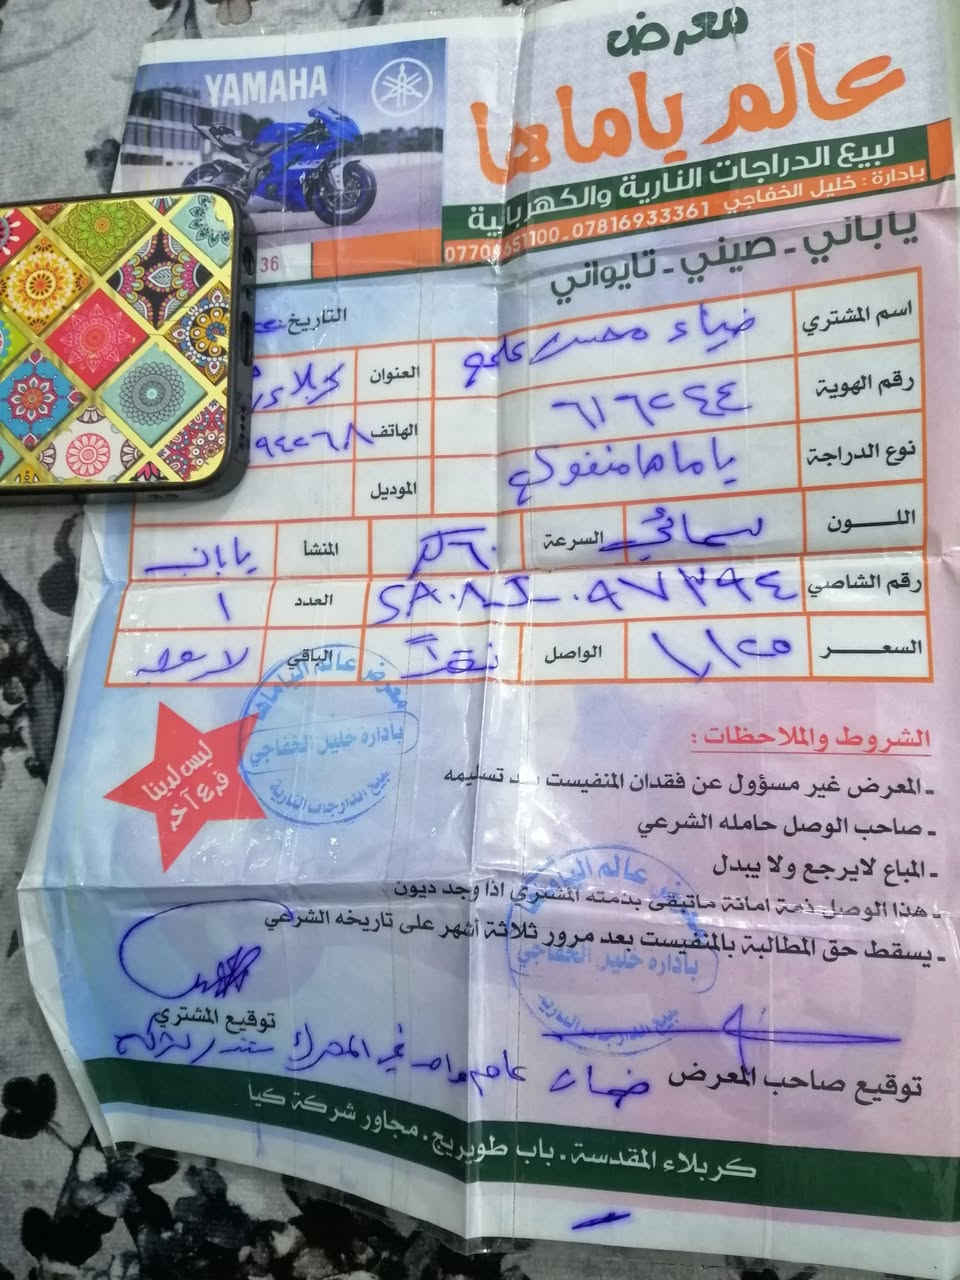 معرض
عالم ياماها
YAMAHA
لبيع الدراجات النارية والكهربائية
بادارة : خليل الخفاجي 07816933361 -
36
ياباني - صيني - تايواني
التاريخ
اسم المشتري ضياء محسن علي
العنوان كربلاء
رقم الهوية ٦١٦٢٤٤
الهاتف ٩٤٢٦٨
نوع الدراجة ياماها منفولي
الموديل
اللون سمائي السرعة ٦٠ كم المنشأ ياباني
رقم الشاصي SA08J-٠٩٧٣٩٤ العدد ١
السعر الواصل نقداً الباقي لا يوجد
معرض عالم الياماها
بأداره خليل الخفاجي
لبيع الدارجات النارية
ليس لدينا
فرع آخر
الشروط والملاحظات :
- المعرض غير مسؤول عن فقدان المنفيست بعد تسليمه
- صاحب الوصل حامله الشرعي
- المباع لايرجع ولا يبدل
- هذا الوصل ذمة امانة ماتبقى بذمته المشتري اذا وجد ديون
- يسقط حق المطالبة بالمنفيست بعد مرور ثلاثة أشهر على تاريخه الشرعي
معرض عالم الياماها
بأداره خليل الخفاجي
لبيع الدارجات النارية
توقيع صاحب المعرض
توقيع المشتري
ضمان عام واحد في المحرك
كربلاء المقدسة - باب طويريج - مجاور شركة كيا